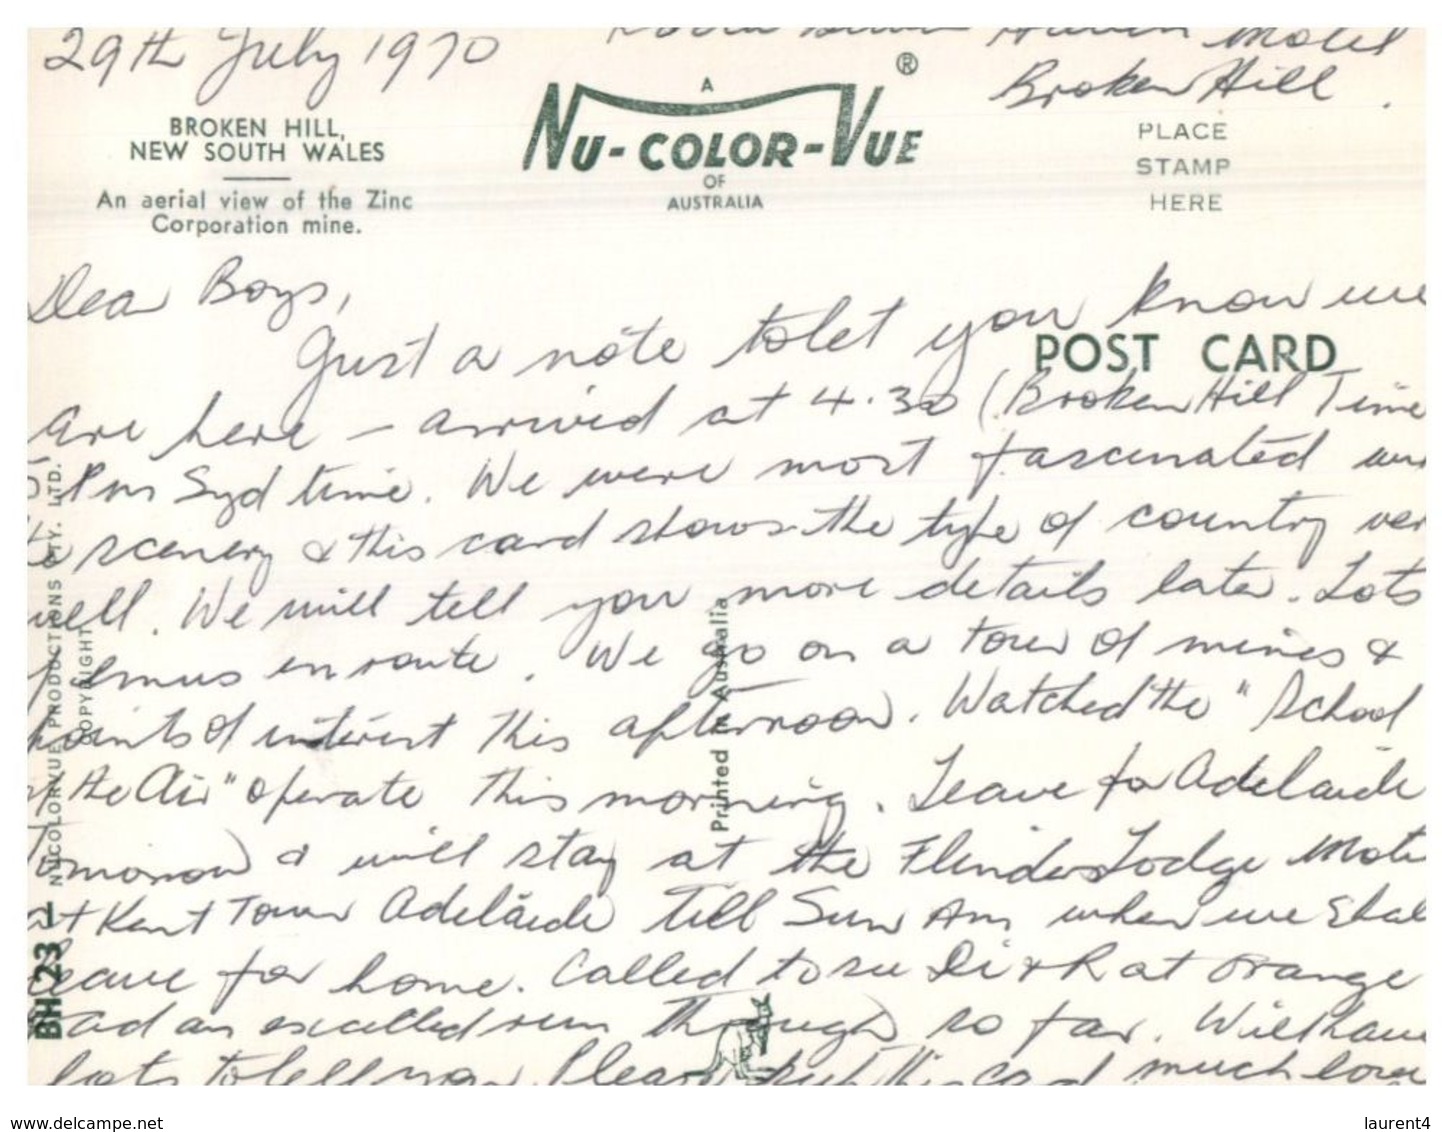 29th July 1970
Motel
Broken Hill.
A
NU-COLOR-VUE ®
OF
AUSTRALIA
BROKEN HILL,
NEW SOUTH WALES
An aerial view of the Zinc
Corporation mine.
PLACE
STAMP
HERE
POST CARD
Dear Boys,
Just a note to let you know we
are here - arrived at 4.30 (Broken Hill Time
5 Pm Syd time. We were most fascinated
scenery & this card shows the type of country
well. We will tell you more details later. Lots
emus en route. We go on a tour of mines &
points of interest this afternoon. Watched the "School
the Air" operate this morning. Leave for Adelaide
Tomorrow & will stay at the Flinders Lodge
at Kent Town Adelaide till Sun Am when we
leave for home. Called to see Di & R at Orange
had an excelled run through so far. Will have
lots to tell you. Please this card much love
BH 23 — NUCOLORVUE PRODUCTIONS PTY. LTD.
COPYRIGHT
Printed in Australia
www.delcampe.net
laurent4